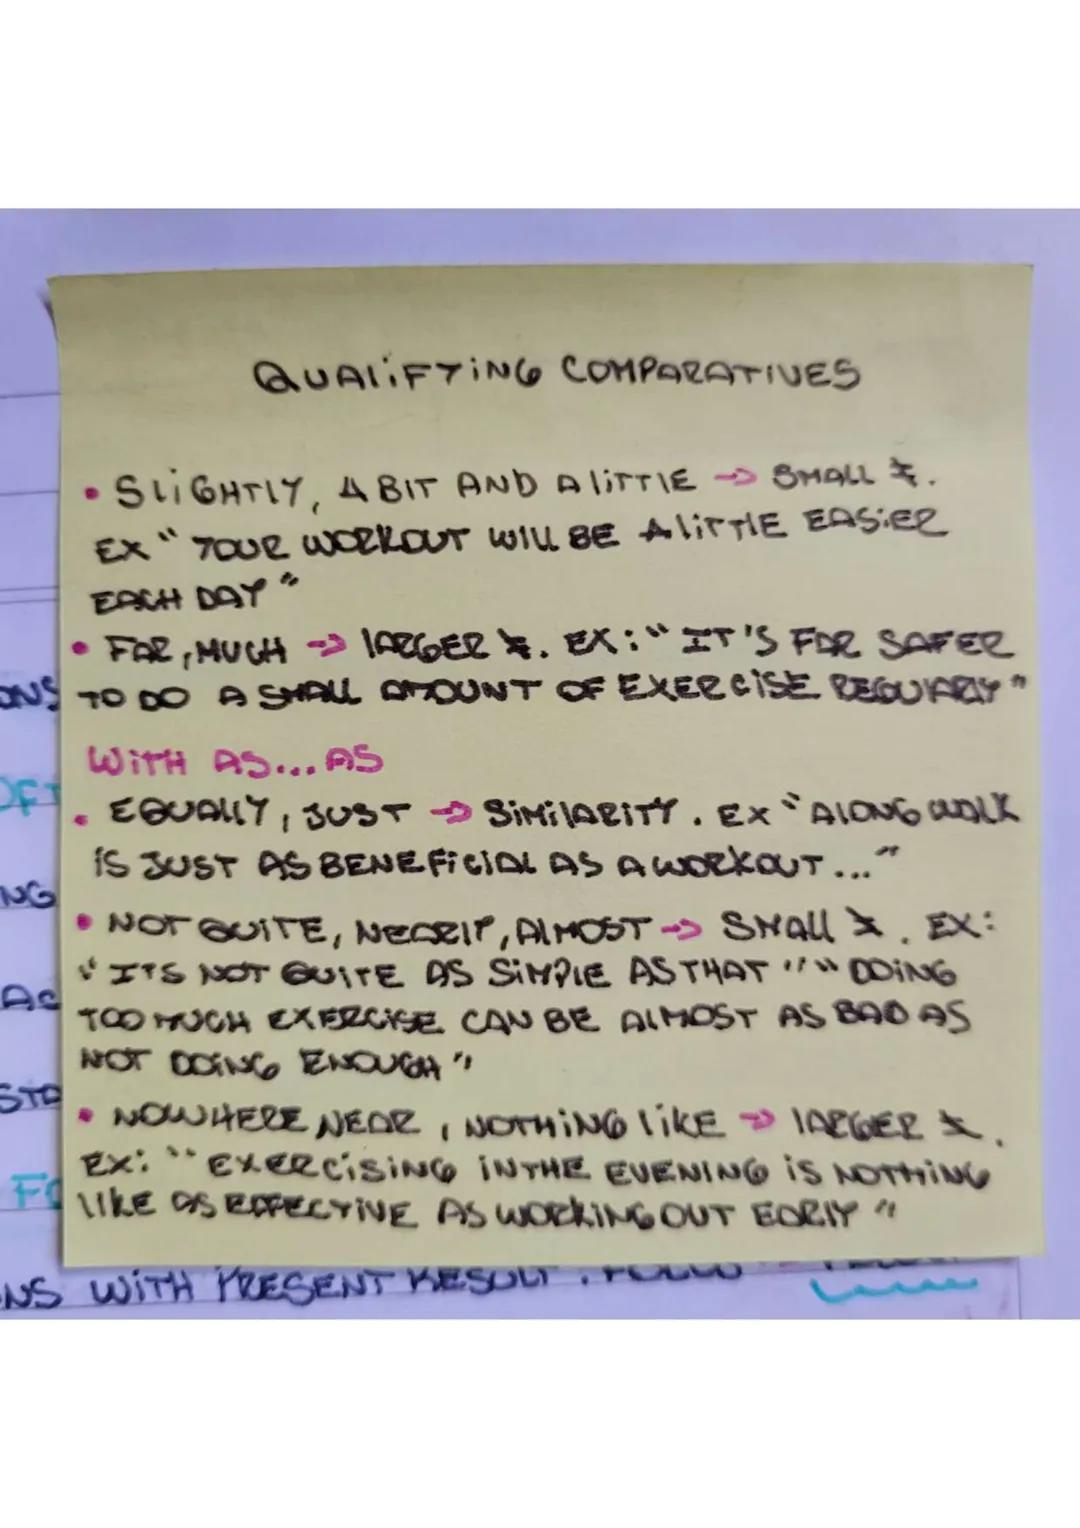 QUALIFYING COMPARATIVES
• SLIGHTLY, A BIT AND A LITTLE → SMALL ≠.
EX "YOUR WORKOUT WILL BE A LITTLE EASIER
EACH DAY"
• FAR, MUCH → LARGER ≠. EX: "IT'S FAR SAFER
ONS TO DO A SMALL AMOUNT OF EXERCISE REGULARLY"
WITH AS... AS
• EQUALLY, JUST → SIMILARITY. EX "A LONG WALK
IS JUST AS BENEFICIAL AS A WORKOUT..."
NG
• NOT QUITE, NEARLY, ALMOST → SMALL ≠. EX:
"ITS NOT QUITE AS SIMPLE AS THAT" "DOING
TOO MUCH EXERCISE CAN BE ALMOST AS BAD AS
NOT DOING ENOUGH"
• NOWHERE NEAR, NOTHING LIKE → LARGER ≠.
EX: "EXERCISING IN THE EVENING IS NOTHING
LIKE AS EFFECTIVE AS WORKING OUT EARLY"
NS WITH PRESENT RESULT.